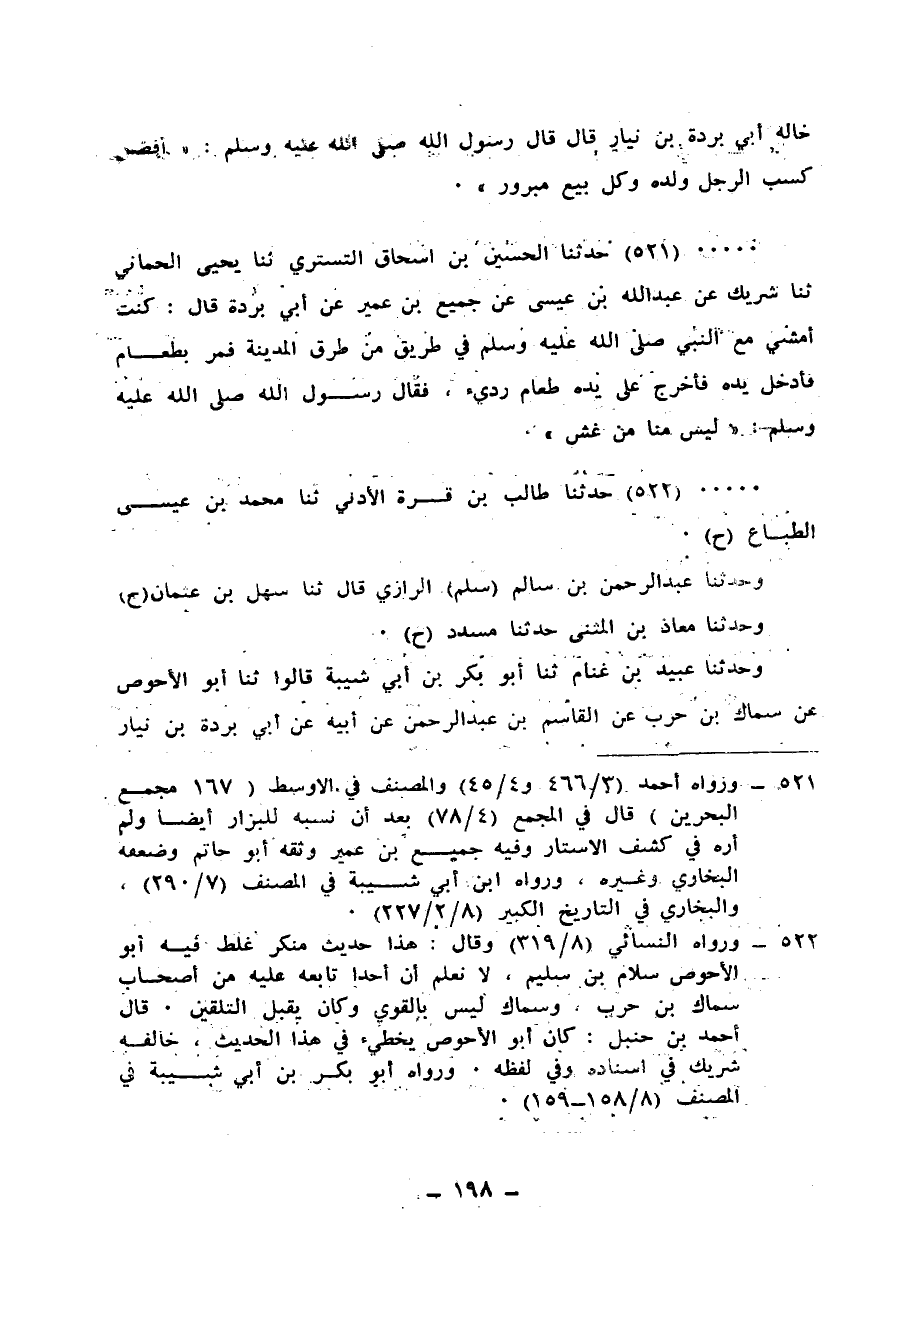 خاله أبي بردة بن نيار قال قال رسول الله صلى الله عليه وسلم : « أفضل
كسب الرجل ولده وكل بيع مبرور » ٠
٠٠٠٠٠ (٥٢١) حدثنا الحسين بن اسحاق التستري ثنا يحيى الحماني
ثنا شريك عن عبدالله بن عيسى عن جميع بن عمير عن أبي بردة قال : كنت
أمشي مع النبي صلى الله عليه وسلم في طريق من طرق المدينة فمر بطعـــام
فأدخل يده فأخرج على يده طعام رديء ، فقال رســـول الله صلى الله عليه
وسلم : « ليس منا من غش » ٠
٠٠٠٠٠ (٥٢٢) حدثنا طالب بن قـــرة الأدني ثنا محمد بن عيســـى
الطبـــاع (ح) ٠
وحدثنا عبدالرحمن بن سالم (سلم) الرازي قال ثنا سهل بن عثمان(ح)
وحدثنا معاذ بن المثنى حدثنا مسدد (ح) ٠
وحدثنا عبيد بن غنام ثنا أبو بكر بن أبي شيبة قالوا ثنا أبو الأحوص
عن سماك بن حرب عن القاسم بن عبدالرحمن عن أبيه عن أبي بردة بن نيار
٥٢١ ـ ورواه أحمد (٤٦٦/٣ و٤٥/٤) والمصنف في الاوسط ( ١٦٧ مجمع
البحرين ) قال في المجمع (٧٨/٤) بعد أن نسبه للبزار أيضـــا ولم
أره في كشف الاستار وفيه جميـــع بن عمير وثقه أبو حاتم وضعفه
البخاري وغيره ، ورواه ابن أبي شـــيبة في المصنف (٢٩٠/٧) ،
والبخاري في التاريخ الكبير (٢٢٧/٢/٨) ٠
٥٢٢ ـ ورواه النسائي (٣١٩/٨) وقال : هذا حديث منكر غلط فيـــه أبو
الأحوص سلام بن سليم ، لا نعلم أن أحدا تابعه عليه من أصحـــاب
سماك بن حرب ، وسماك ليس بالقوي وكان يقبل التلقين ٠ قال
أحمد بن حنبل : كان أبو الأحوص يخطيء في هذا الحديث ، خالفـــه
شريك في اسناده وفي لفظه ٠ ورواه أبو بكـــر بن أبي شـــيبة في
المصنف (١٥٨/٨ـ١٥٩) ٠
ـ ١٩٨ ـ